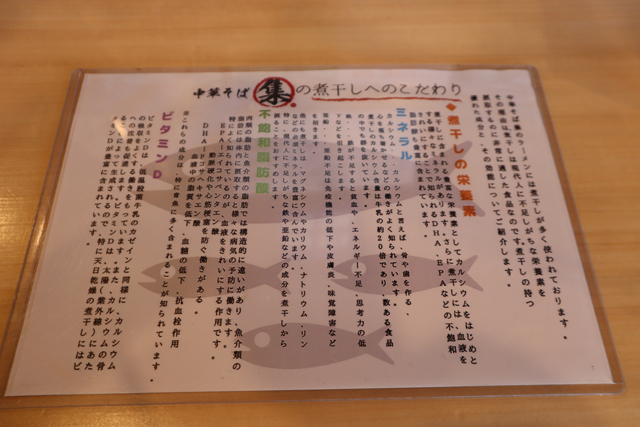 中華そば 集 の煮干しへのこだわり
中華そば集のラーメンには煮干しが多く使われております。
その理由は煮干しは現代人に不足しがちな栄養素を
摂取するのに非常に適した食品なのです。煮干しの持つ
優れた成分と、その効能についてご紹介します。
◆煮干しの栄養素
煮干しに含まれる豊富な栄養素としてカルシウムをはじめと
する様々なミネラルがあります。さらに煮干しには、血液を
きれいにすることで知られるDHA、EPAなどの不飽和
脂肪酸も豊富に含まれています。
ミネラル
カルシウム・・カルシウムと言えば、骨や歯を作る、
心を落ち着かせるなどの働きがよく知られています。
煮干しのカルシウム含有量は牛乳の約20倍であり、数ある食品
の中でも群を抜いています。
鉄・・鉄分が不足すると貧血や、エネルギー不足、思考力の低
下などを引き起こします。
亜鉛・・亜鉛不足は免疫機能の低下や皮膚炎、味覚障害など
を招きます。
他にも煮干しは、マグネシウムやカリウム、ナトリウム、リン
などの必須ミネラルを豊富に含んでいます。
特に、現代人に不足しがちな鉄や亜鉛などの成分を煮干しから
摂ることをおすすめします。
不飽和脂肪酸
肉類の脂肪と魚介類の脂肪では構造的に違いがあり、魚介類の
脂肪には、摂取すると様々な病気の予防に働きます。
特によく知られているのが、血液をきれいにする作用です。
EPA:エイコサペンタエン酸
動脈硬化や心筋梗塞を防ぐ働きがある。
DHA:ドコサヘキサエン酸
血液中の脂質の低下、血糖の低下、抗血栓作用
※これらの成分は、特に青魚に多く含まれることが知られています。
ビタミンD
ビタミンDは、低温殺菌牛乳のカゼインと同様に、カルシウム
の吸収をよくする働きをもっています。また、カルシウムの骨
への沈着も促進します。ビタミンDは、太陽(紫外線)にあた
ることによって生成されるので、特に天日乾燥の煮干しにはビ
タミンDが豊富に含まれています。